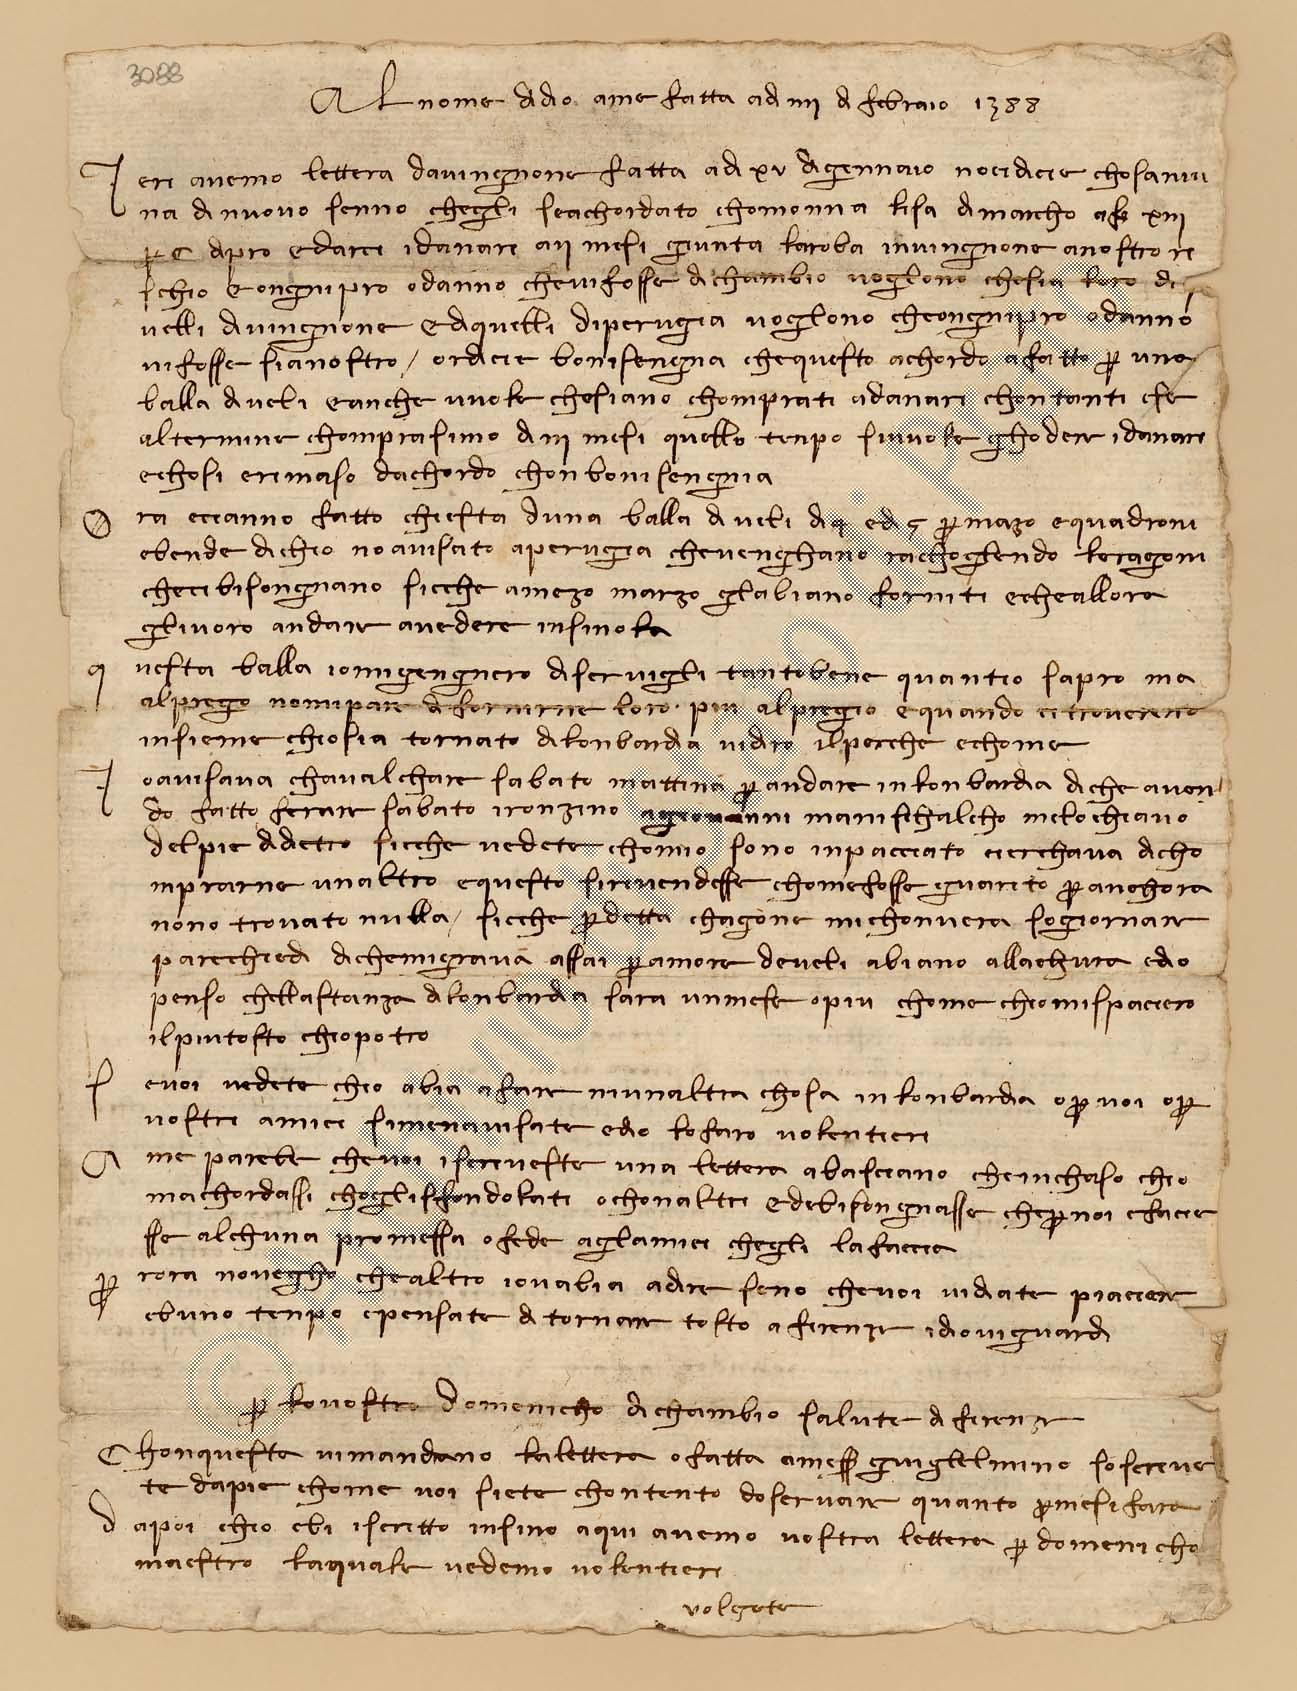 3088
Al nome di dio ame fatta a di iiij di febraio 1388
Ieri avemo lettera davingnone fatta a di xv di gennaio noci dicie chosa niu
na di nuovo senno chegli se achordato cho monna lisa di marcho a fi xiij
per c di pro e darci i danari a ij mesi giunta la roba in vingnone a nostro ri
schio e ongni pro o danno che vi fosse di chambio vogliono che sia loro di
velli di vingnone e di quelli di perugia vogliono che ongni pro o danno
vi fosse sia nostro / or dicie bonisengna che questo achordo a fatto per una
balla di veli e anche vuole che siano chomprati a danari chontanti e se
al termine chomprasimo di iij mesi quello tenpo si vuole ghodere i danari
e chosi e rimaso dachordo chon bonisengnia
Ora ci cianno fatto chiesta duna balla di veli di 4 e di 5 per mazo e quadroni
e bende di che io no avisato a perugia che venghano rachogliendo le ragioni
che ci bisongnano sicche a mezo marzo gli abiano forniti e che allora
gli voro andare a vedere insino la
questa balla io mi gengnero di servigli tanto bene quantio sapro ma
al pregio nomi pare di fornirne loro piu al pregio e quando ci troveremo
insieme chio sia tornato di lonbardia vi diro il perche e chome
Io avisava chavalchare sabato mattina per andare in lonbardia di che aven
do fatto ferrare sabato i ronzino a giovanni manischalcho me lo chiavo
del pie di dietro sicche vedete chomio sono inpacciato e cierchava di cho
mprarne unaltro e questo si rivendesse chome fosse guarito per anchora
nono trovato nulla / sicche per detta chagone mi chonvera sogiornare
parechi di di che mi grava assai per amore de veli abiano allachura ed io
penso chella stanza di lonbardia sara un mese o piu chome chio mi spaciero
il piu tosto chio potro
Se voi vedete chio abia a fare niunaltra chosa in lonbardia o per voi o per
vostri amici si me navisate ed io lo faro volentieri
A me parebe che voi iscriveste una lettera a basciano che in chaso chio
machordassi chogli isfondolati o chonaltri e de bisongnasse che per noi e facie
sse alchuna promessa o fede agli amici chegli la faccia
Per ora no vegho che altro io vabia a dire seno che voi vi diate piaciere
e buno tenpo e pensate di tornare tosto a firenze idio vi guardi
per lo vostro Domenicho di chambio salute di firenze
Chonquesta vi mandiamo la lettera o fatta a messer guiglielmino soscrive
te da pie chome voi siete chontento doservare quanto promesi fare
da poi chio ebi iscritto insino a qui avemo vostra lettera per domenicho
maestro la quale vedemo volentieri
volgete